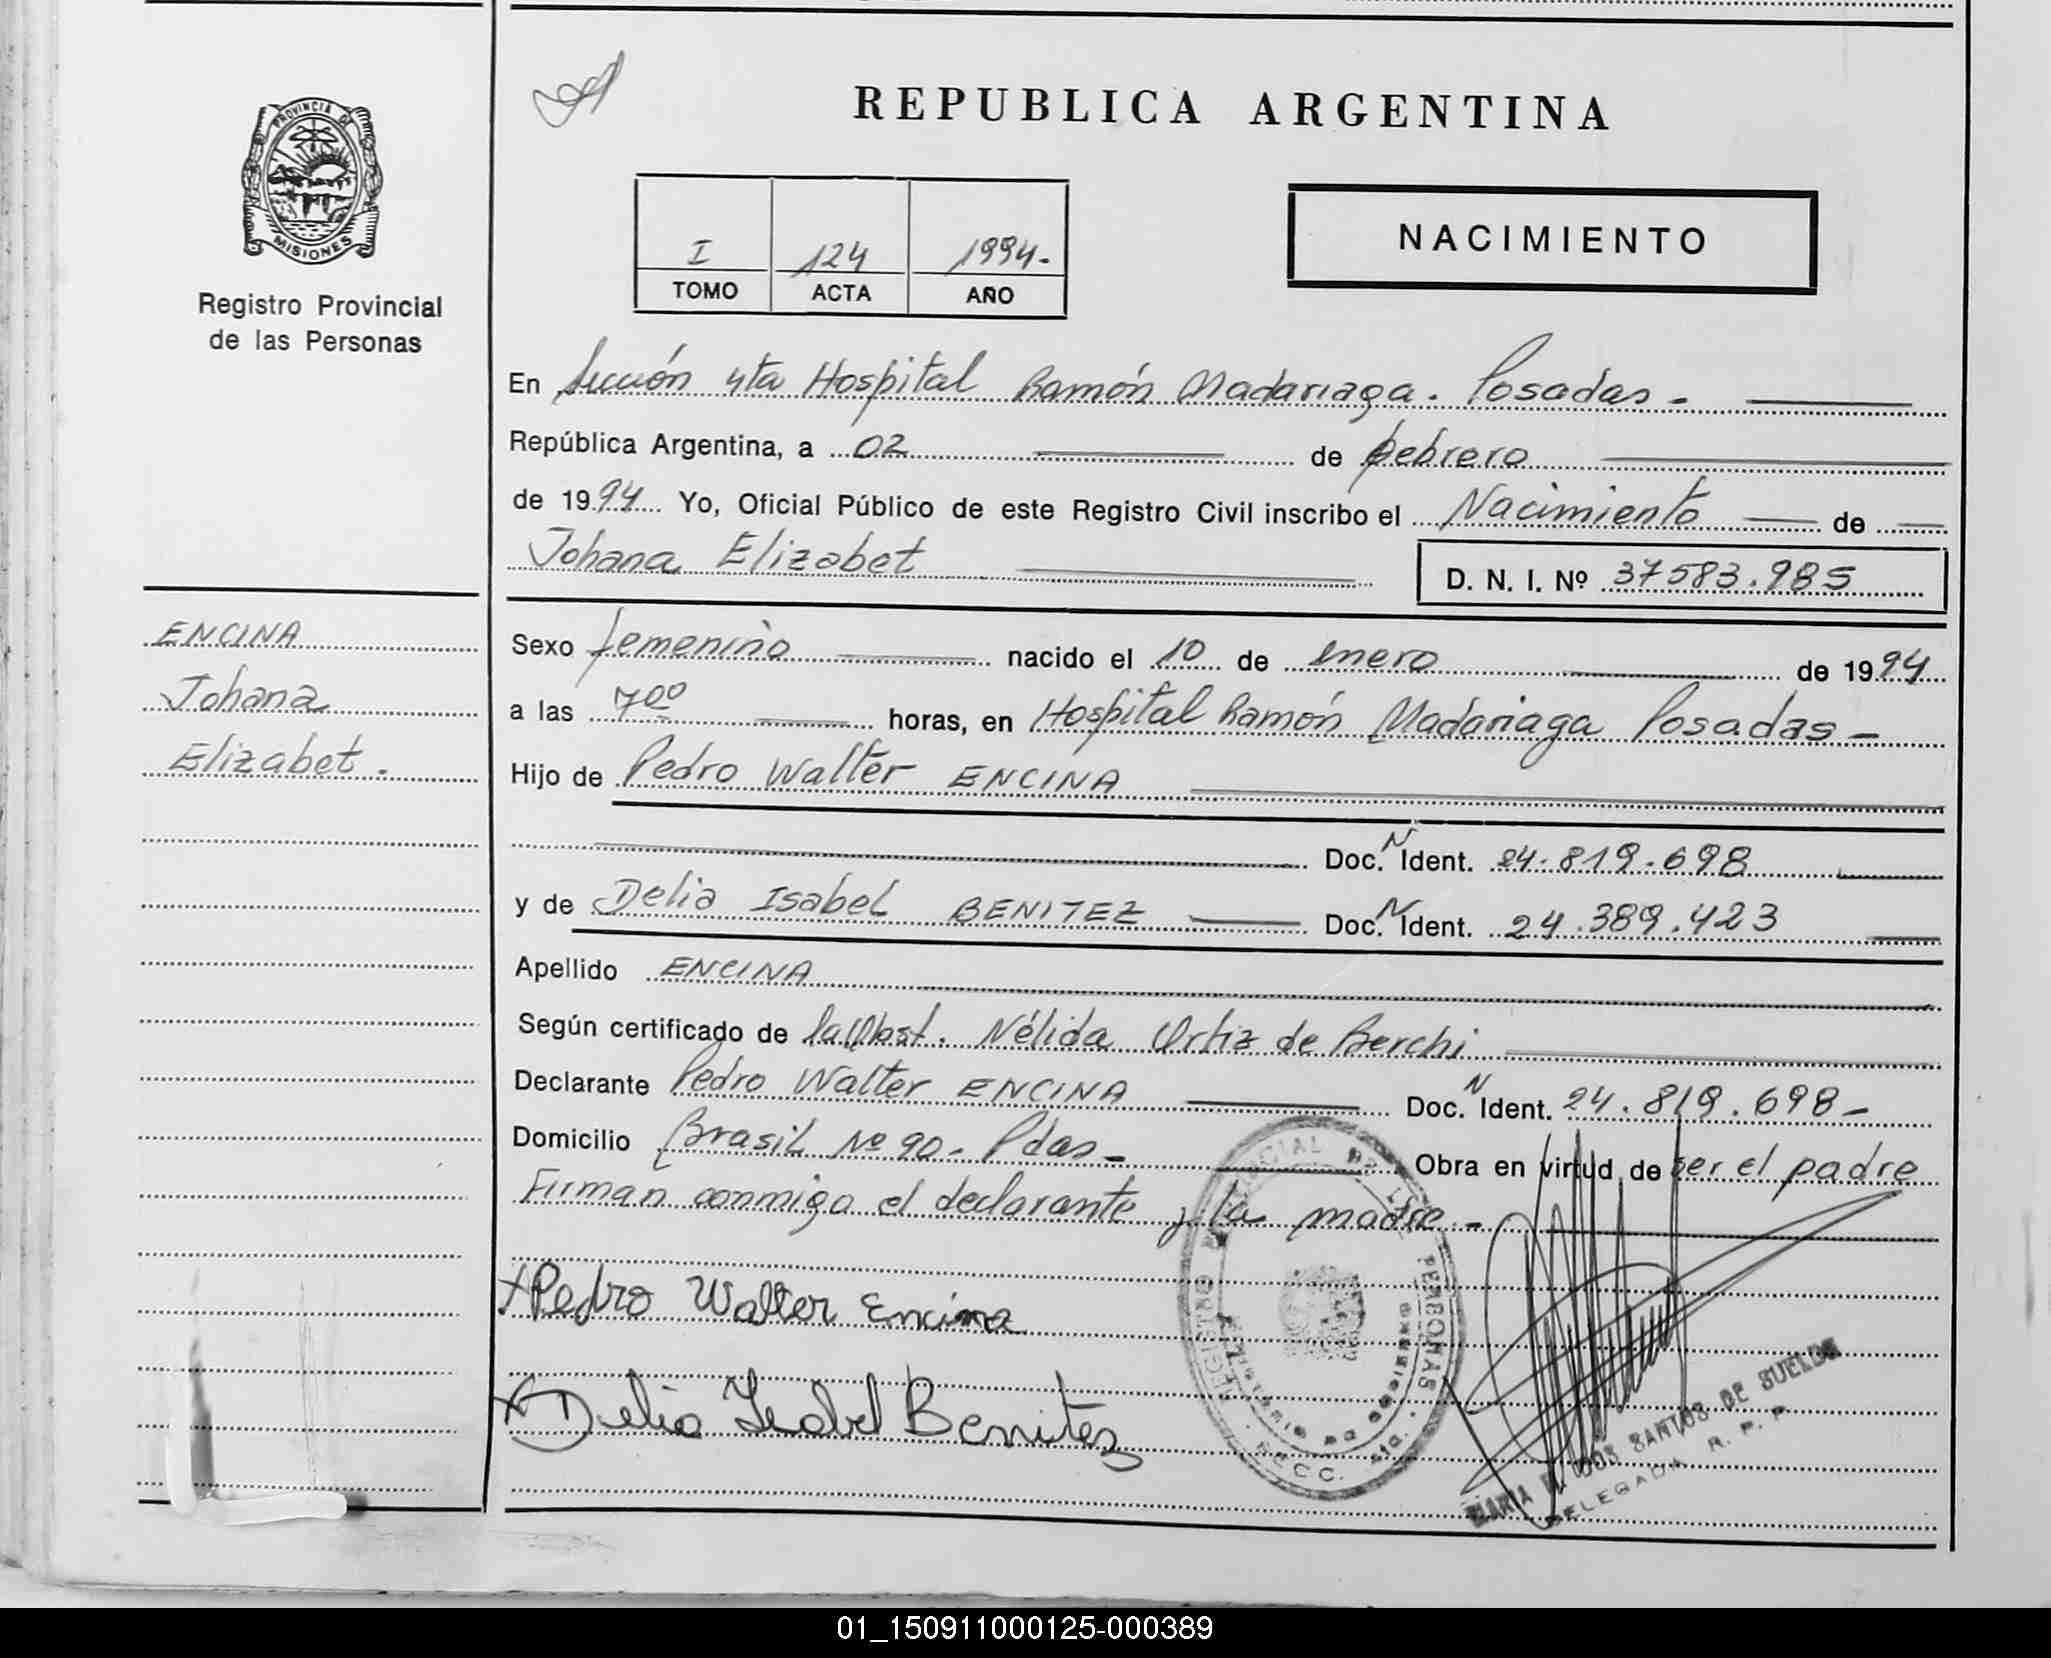 REPUBLICA ARGENTINA
PROVINCIA DE
MISIONES
Registro Provincial
de las Personas
I 124 1994.-
TOMO ACTA AÑO
NACIMIENTO
En Sección 4ta Hospital Ramón Madariaga. Posadas.-
República Argentina, a 02 de febrero
de 1994 Yo, Oficial Público de este Registro Civil inscribo el Nacimiento de
Johana Elizabet D. N. I. Nº 37583.985
ENCINA
Johana
Elizabet.
Sexo femenino nacido el 10 de enero de 1994
a las 7 00 horas, en Hospital Ramón Madariaga Posadas-
Hijo de Pedro Walter ENCINA
Doc. N Ident. 24.819.698
y de Delia Isabel BENITEZ Doc. N Ident. 24.389.423
Apellido ENCINA
Según certificado de la Obst. Nélida Ortiz de Berchi
Declarante Pedro Walter ENCINA Doc. N Ident. 24.819.698-
Domicilio Brasil Nº 90- Pdas- Obra en virtud de ser el padre
Firman conmigo el declarante y la madre.-
Pedro Walter Encina
Delia Isabel Benitez
REGISTRO PROVINCIAL DE LAS PERSONAS
MARIA DOS SANTOS DE SUELDO
DELEGADA R. P. P.
01_150911000125-000389